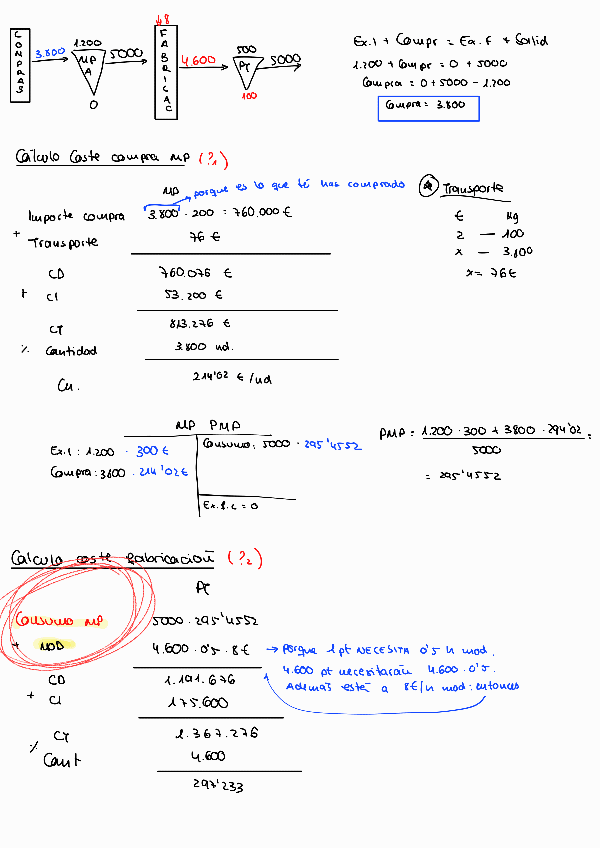 COMPRAS
3.800
1.200
MP
A
0
5000
48
FABRICAC
4.600
500
PT
100
5000
Ex.I + Compr = Ex.F + Salid
1.200 + Compr = 0 + 5000
Compra = 0 + 5000 - 1.200
Compra = 3.800
Cálculo Coste compra MP (?1)
MP
porque es lo que tú has comprado
Importe compra 3.800 · 200 = 760.000 €
+ Transporte 76 €
CD 760.076 €
+ CI 53.200 €
CT 813.276 €
% Cantidad 3.800 ud.
Cu. 214'02 €/ud
* Transporte
€ Kg
2 — 100
x — 3.800
x = 76€
MP PMP
Ex.I: 1.200 · 300€
Compra: 3800 · 214'02€
Consumo: 5000 · 295'4552
Ex.f.c = 0
PMP = 1.200 · 300 + 3800 · 294'02 =
5000
= 295'4552
Cálculo coste fabricación (?2)
PT
Consumo MP 5000 · 295'4552
+ MOD 4.600 · 0'5 · 8€ → Porque 1 pt NECESITA 0'5 h mod.
4.600 pt necesitarán 4.600 · 0'5.
Además está a 8€/h mod: entonces
CD 1.191.676
+ CI 175.600
CT 1.367.276
% Cant 4.600
297'233